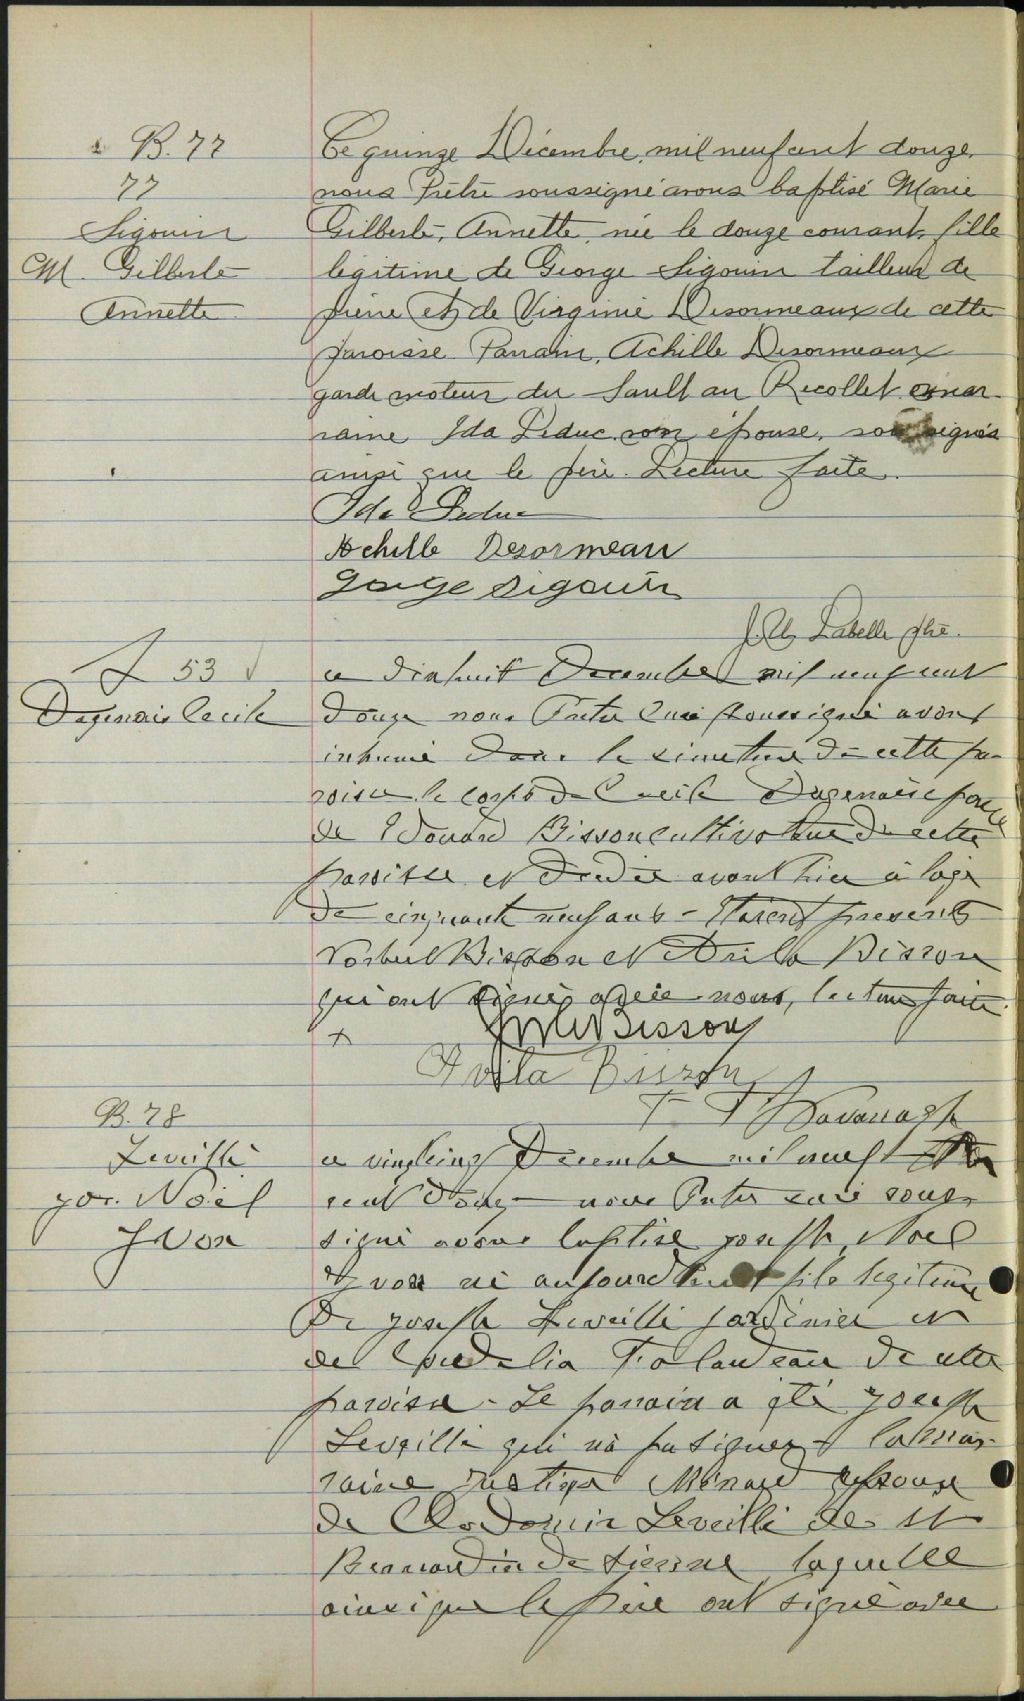 B. 77
77
Sigouin
M. Gilberte
Annette
Ce quinze Décembre, mil neuf cent douze,
nous Prêtre soussigné avons baptisé Marie
Gilberte, Annette, née le douze courant, fille
légitime de George Sigouin tailleur de
pierre et de Virginie Desormeaux de cette
paroisse. Parrain, Achille Desormeaux
garde moteur du Sault au Recollet, mar-
raine Ida Leduc son épouse, soussignés
ainsi que le père. Lecture faite.
Ida Leduc
Achille Desormeau
George Sigouin
Labelle ptre.
S 53
Dagenais Cecile
ce dix huit Decembre mil neuf cent
douze nous Pretre Curé soussigné avons
inhumé dans le cimetiere de cette pa-
roisse le corps de Cecile Dagenais epouse
de Edouard Bisson cultivateur de cette
paroisse et décédée avant hier à l'age
de cinquante neuf ans - Etaient presents
Norbert Bisson et Avila Bisson
qui ont signés avec nous, lecture faite.
+ Bisson
Avila Bisson
F Kavanagh
B. 78
Leveillé
Jos. Noël
Yvon
ce vingt cinq Decembre mil neuf
cent douze nous Pretre curé sous-
signé avons baptisé Joseph, Noel
Yvon né aujourd'hui fils legitime
De Joseph Leveillé jardinier et
de Cordelia Taladeau de cette
paroisse - Le parrain a été Joseph
Leveillé qui n'a pu signer - la mar-
raine Justine Menard epouse
de Clodomir Leveillé de St
Bernardin de Sienne laquelle
ainsi que le pere ont signé avec